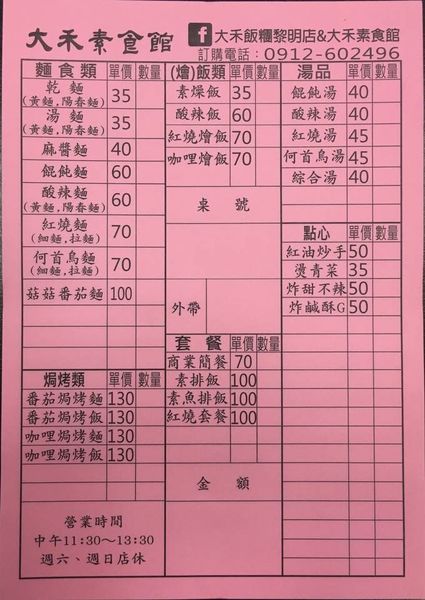 大禾素食館
f 大禾飯糰黎明店&大禾素食館
訂購電話：0912-602496
麵食類 單價 數量
乾麵 35
(黃麵,陽春麵)
湯麵 35
(黃麵,陽春麵)
麻醬麵 40
餛飩麵 60
酸辣麵 60
(黃麵,陽春麵)
紅燒麵 70
(細麵,拉麵)
何首烏麵 70
(細麵,拉麵)
菇菇番茄麵 100
焗烤類 單價 數量
番茄焗烤麵 130
番茄焗烤飯 130
咖哩焗烤麵 130
咖哩焗烤飯 130
營業時間
中午11:30～13:30
週六、週日店休
(燴)飯類 單價 數量
素燥飯 35
酸辣飯 60
紅燒燴飯 70
咖哩燴飯 70
桌號
外帶
套餐 單價 數量
商業簡餐 70
素排飯 100
素魚排飯 100
紅燒套餐 100
金額
湯品 單價 數量
餛飩湯 40
酸辣湯 40
紅燒湯 45
何首烏湯 45
綜合湯 40
點心 單價 數量
紅油炒手 50
燙青菜 35
炸甜不辣 50
炸鹹酥G 50